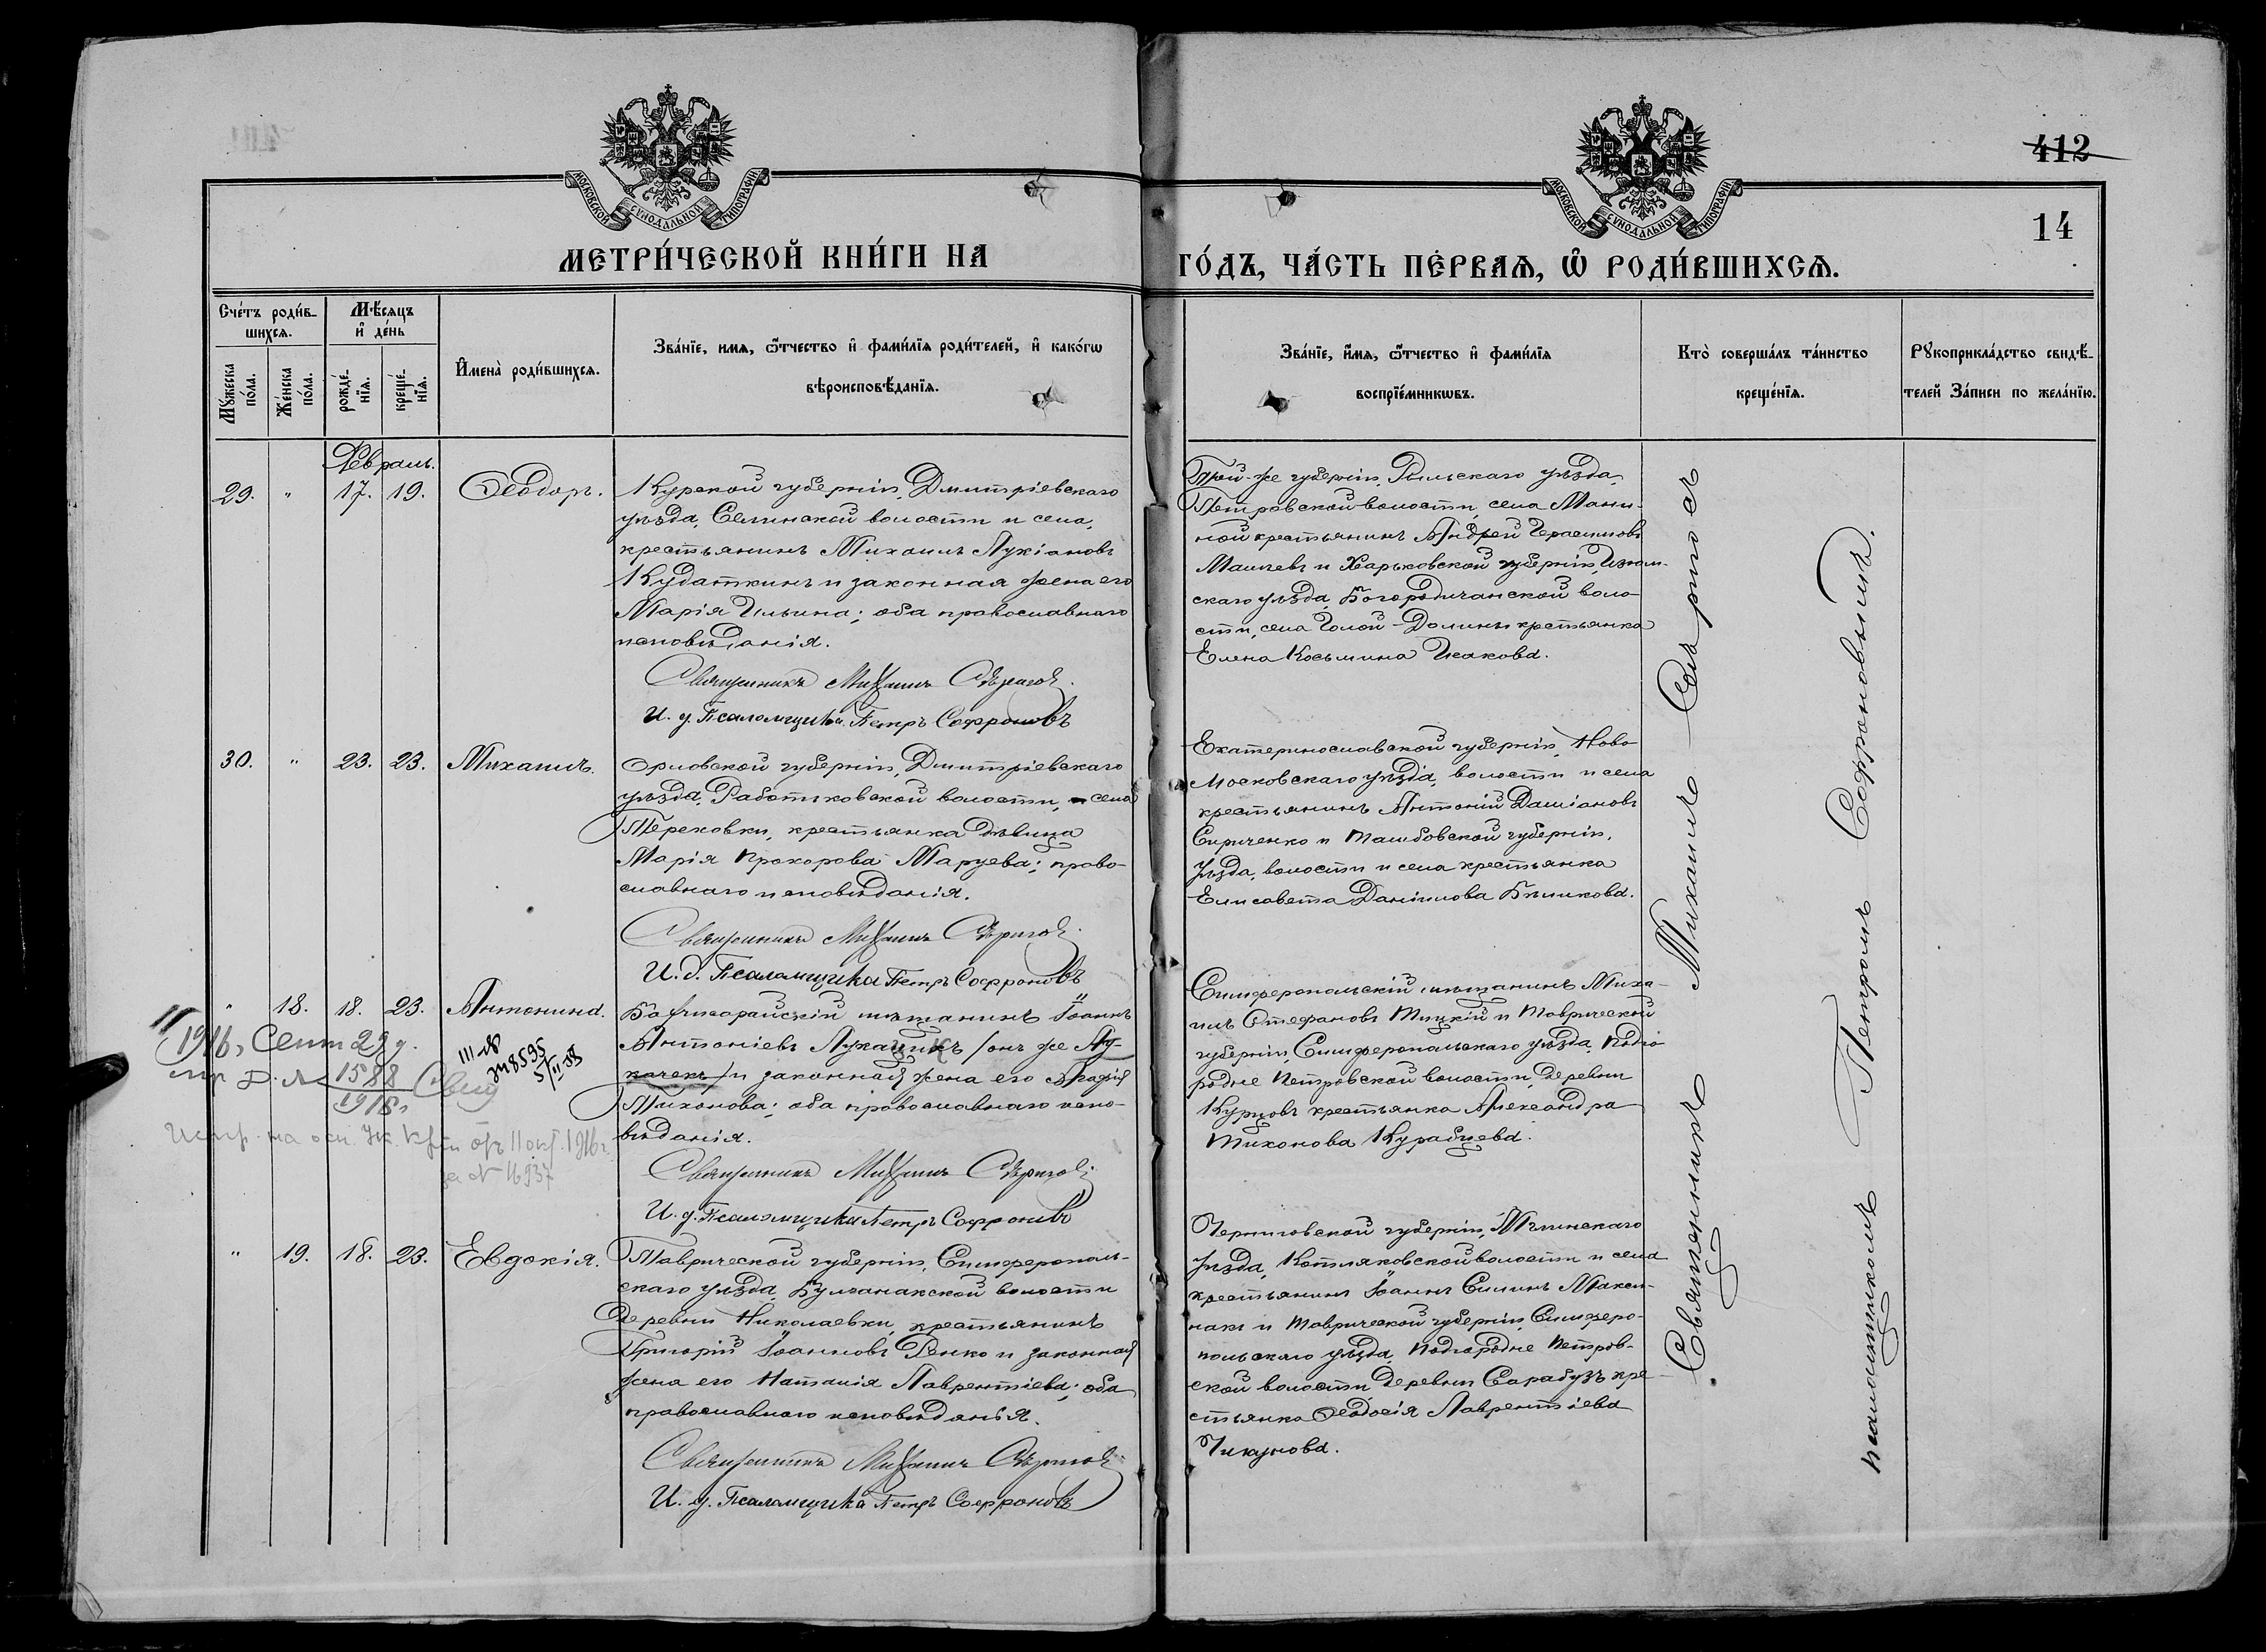 412
МОСКОВСКОЙ СѴНОДАЛЬНОЙ ТИПОГРАФІИ
МОСКОВСКОЙ СѴНОДАЛЬНОЙ ТИПОГРАФІИ
14
МЕТРИ́ЧЕСКОЙ КНИ́ГИ НА
ГО́ДЪ, ЧА́СТЬ ПЕ́РВАѦ, Ѡ РОДИ́ВШИХСѦ.
Сче́тъ роди́в-
шихсѧ.
Мꙋжеска по́ла.
Же́нска по́ла.
Мѣ́сяцъ
и҆ де́нь
рожде́-нїѧ.
креще́-нїѧ.
И҆мена̀ роди́вшихсѧ.
Зва́нїе, имѧ, ѻ҆́тчество и҆ фами́лїѧ роди́телей, и҆ како́гѡ
вѣроисповѣ́данїѧ.
Зва́нїе, и҆́мѧ, ѻ҆́тчество и҆ фами́лїѧ
воспрїе́мникѡвъ.
Кто̀ соверша́лъ та́инство
креще́нїѧ.
Рꙋкоприкла́дство свидѣ́-
телей За́писи по жела́нїю.
Февраль.
29. " 17. 19. Ѳеодоръ.
Курской губерніи, Дмитріевскаго
уѣзда, Селинской волости и села,
крестьянинъ Михаилъ Лукіановъ
Кудаткинъ и законная жена его
Марія Ильина; оба православнаго
исповѣданія.
Священникъ Михаилъ Сѣриговъ
И. д. Псаломщика Петръ Софроновъ
Той-же губерніи, Рыльскаго уѣзда,
Петровской волости, села Мани-
ной крестьянинъ Андрей Герасимовъ
и Харьковской губерніи, Изюм-
скаго уѣзда, Богородичанской воло-
сти, села Голой-Долины крестьянка
Елена Косьмина Исакова.
30. " 23. 23. Михаилъ.
Орловской губерніи, Дмитріевскаго
уѣзда, волости, села
Тереховки, крестьянка дѣвица
Марія Прохорова Маруева; право-
славнаго исповѣданія.
Священникъ Михаилъ Сѣриговъ
И. д. Псаломщика Петръ Софроновъ
Екатеринославской губерніи, Ново-
московскаго уѣзда, волости и села
крестьянинъ Антоній Даміановъ
Сириченко и Тамбовской губерніи,
уѣзда, волости и села крестьянка
Елисавета Даніилова Бѣликова.
" 18. 18. 23. Антонина.
Бахчисарайскій мѣщанинъ Іоаннъ
Антоніевъ /онъ же Лу-
качекъ/ и законная жена его
Тихонова; оба православнаго испо-
вѣданія.
Священникъ Михаилъ Сѣриговъ
И. д. Псаломщика Петръ Софроновъ
1916, Сент 29 д.
1588
1916,
Симферопольскій мѣщанинъ Миха-
илъ Стефановъ и Таврической
губерніи, Симферопольскаго уѣзда, Подго-
родне Петровской волости, деревни
Курцовъ крестьянка Александра
Тихонова
" 19. 18. 23. Евдокія.
Таврической губерніи, Симферополь-
скаго уѣзда, Булганакской волости
деревни Николаевки, крестьянинъ
Григорій Іоанновъ Ренко и законная
жена его Наталія Лаврентіева; оба
православнаго исповѣданія.
Священникъ Михаилъ Сѣриговъ
И. д. Псаломщика Петръ Софроновъ
Черниговской губерніи, Мглинскаго
уѣзда, Котляковской волости и села
крестьянинъ Іоаннъ Силинъ Макси-
и Таврической губерніи, Симферо-
польскаго уѣзда, Подгородне Петров-
ской волости, деревни Сарабузъ кре-
стьянка Ѳеодосія Лаврентіева
Чикунова.
Священникъ Михаилъ Сѣриговъ съ
псаломщикомъ Петромъ Софроновымъ.